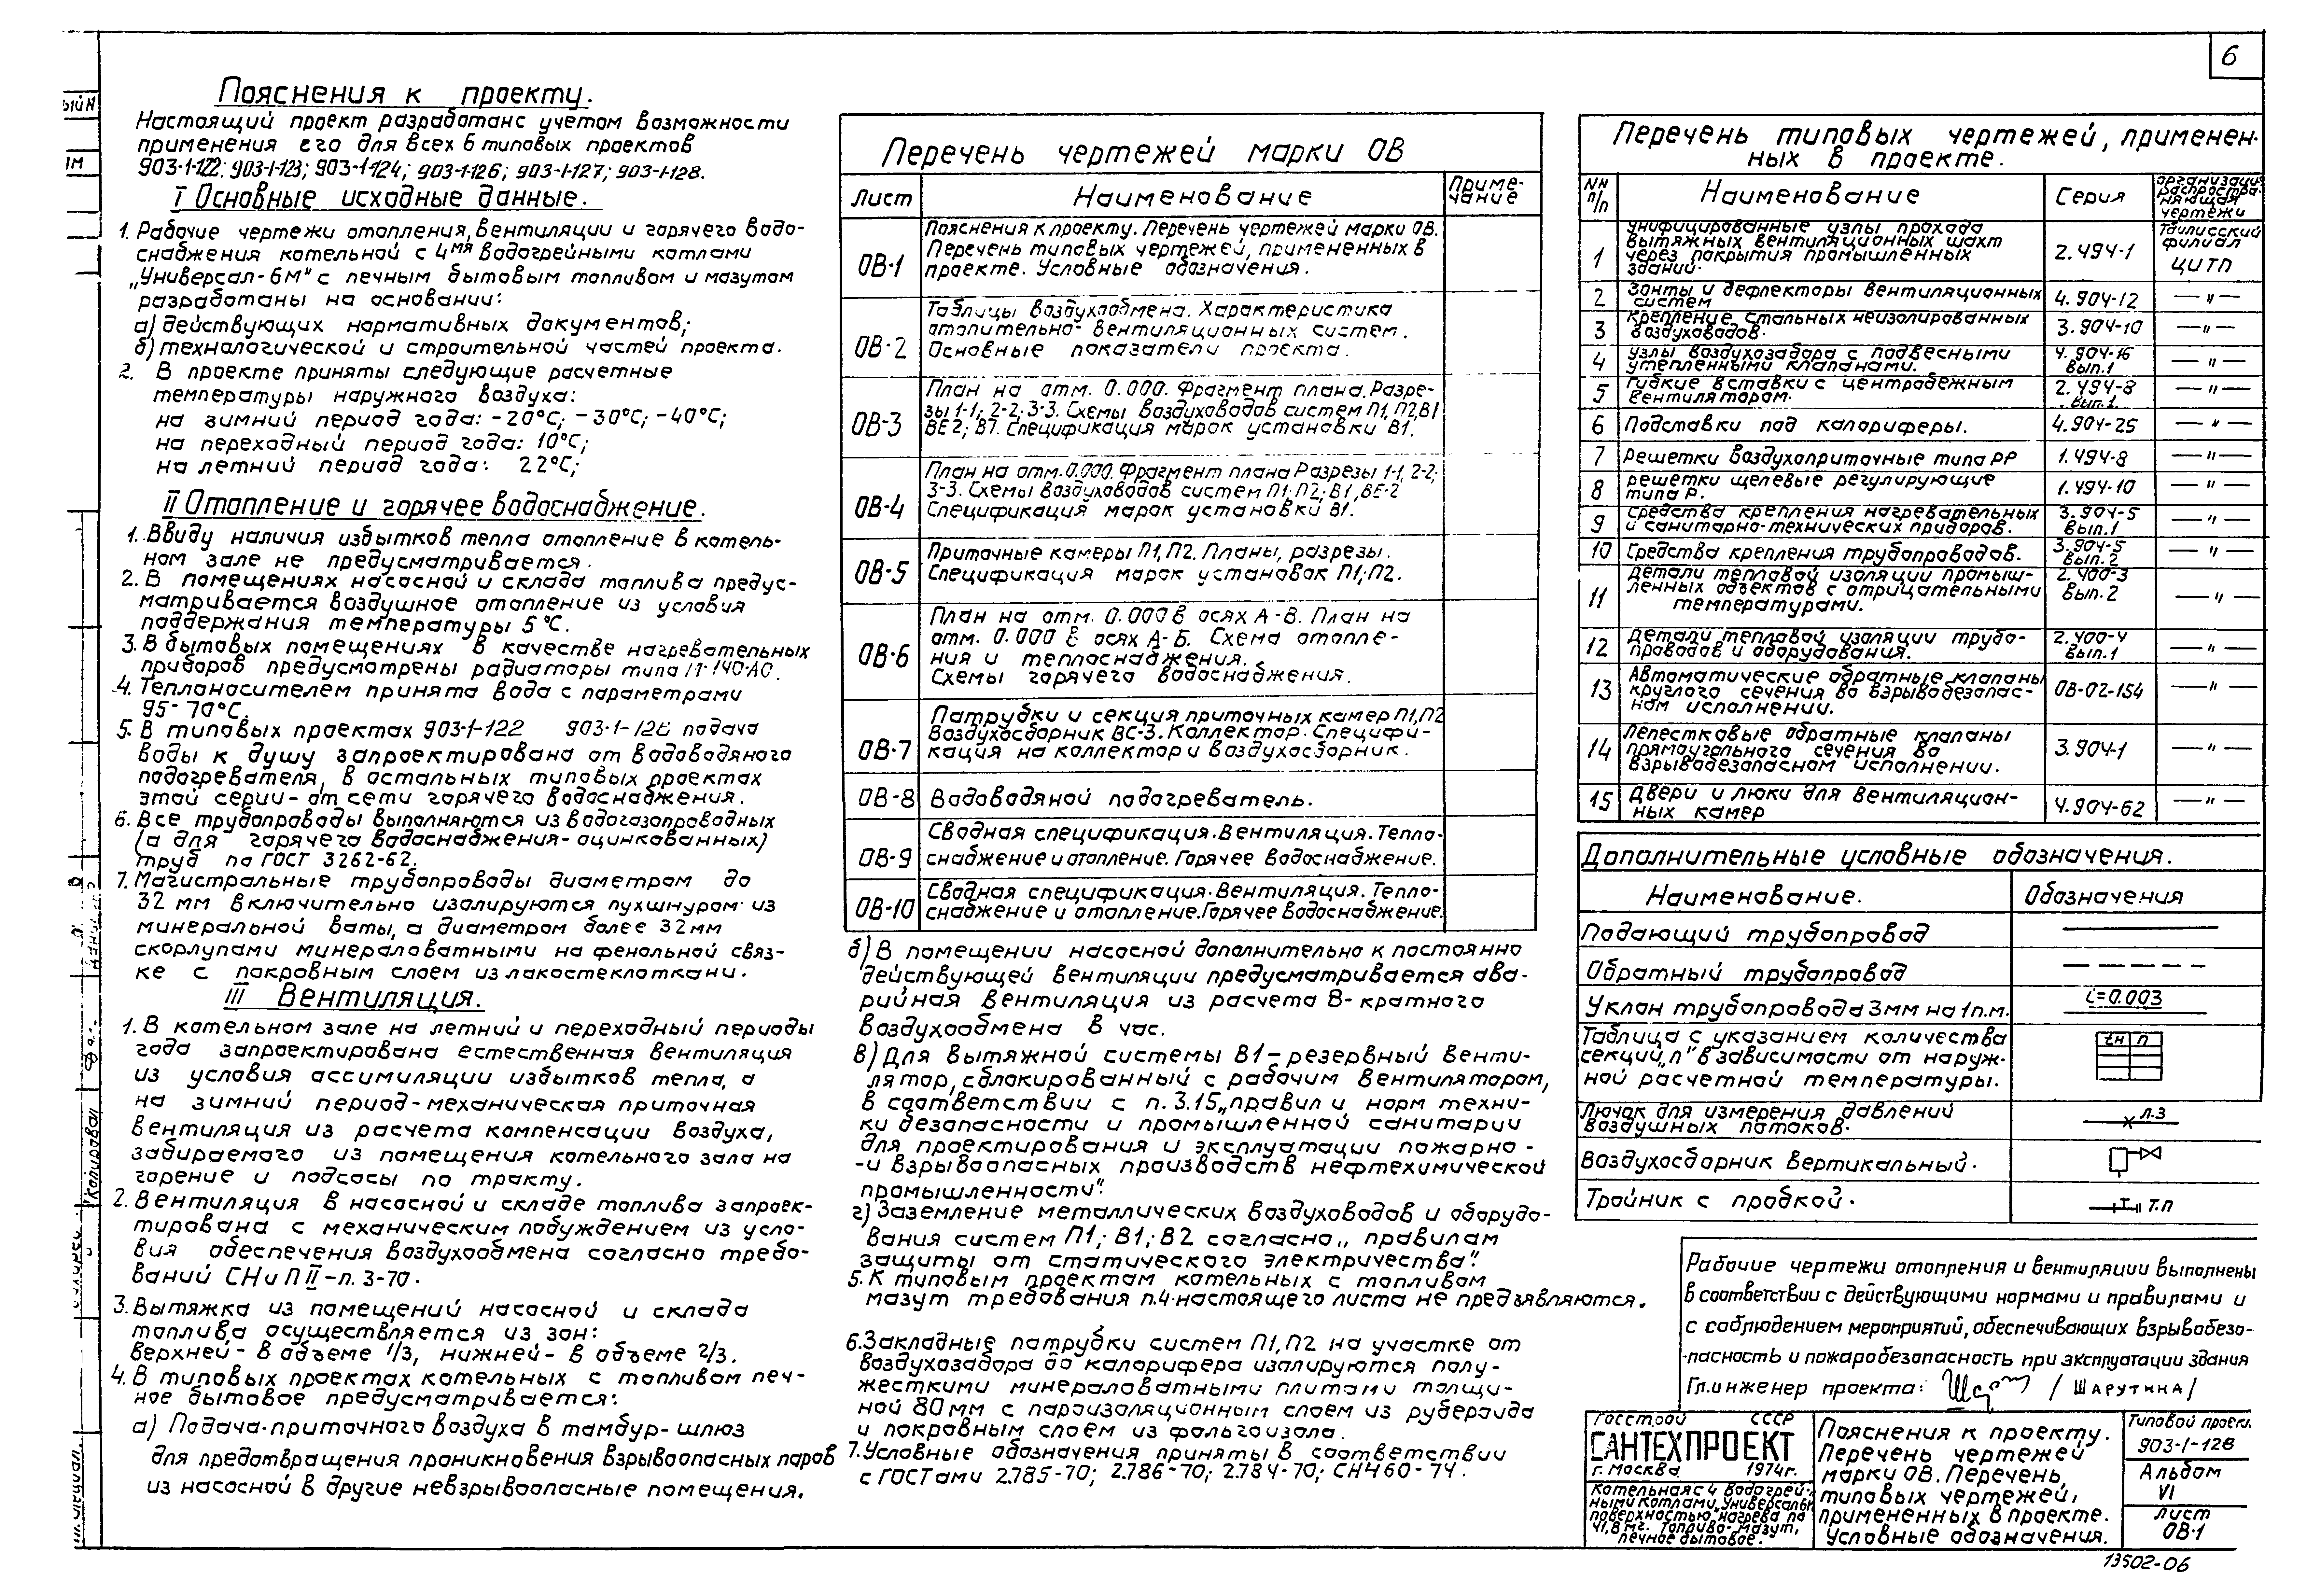 6
Пояснения к проекту.
Настоящий проект разработан с учетом возможности
применения его для всех 6 типовых проектов
903-1-122; 903-1-123; 903-1-124; 903-1-126; 903-1-127; 903-1-128.
I Основные исходные данные.
1. Рабочие чертежи отопления, вентиляции и горячего водо-
снабжения котельной с 4мя водогрейными котлами
„Универсал-6М" с печным бытовым топливом и мазутом
разработаны на основании:
а) действующих нормативных документов;
б) технологической и строительной частей проекта.
2. В проекте приняты следующие расчетные
температуры наружного воздуха:
на зимний период года: -20°С; -30°С; -40°С;
на переходный период года: 10°С;
на летний период года: 22°С;
II Отопление и горячее водоснабжение.
1. Ввиду наличия избытков тепла отопление в котель-
ном зале не предусматривается.
2. В помещениях насосной и склада топлива предус-
матривается воздушное отопление из условия
поддержания температуры 5°С.
3. В бытовых помещениях в качестве нагревательных
приборов предусмотрены радиаторы типа М-140-АО.
4. Теплоносителем принята вода с параметрами
95-70°С
5. В типовых проектах 903-1-122 903-1-126 подача
воды к душу запроектирована от водоводяного
подогревателя, в остальных типовых проектах
этой серии - от сети горячего водоснабжения.
6. Все трубопроводы выполняются из водогазопроводных
(а для горячего водоснабжения - оцинкованных)
труб по ГОСТ 3262-62.
7. Магистральные трубопроводы диаметром до
32 мм включительно изолируются пухшнуром из
минеральной ваты, а диаметром более 32мм
скорлупами минераловатными на фенольной связ-
ке с покровным слоем из лакостеклоткани.
III Вентиляция.
1. В котельном зале на летний и переходный периоды
года запроектирована естественная вентиляция
из условия ассимиляции избытков тепла, а
на зимний период - механическая приточная
вентиляция из расчета компенсации воздуха,
забираемого из помещения котельного зала на
горение и подсосы по тракту.
2. Вентиляция в насосной и складе топлива запроек-
тирована с механическим побуждением из усло-
вия обеспечения воздухообмена согласно требо-
ваний СНиП II-п. 3-70.
3. Вытяжка из помещений насосной и склада
топлива осуществляется из зон:
верхней - в объеме 1/3, нижней - в объеме 2/3.
4. В типовых проектах котельных с топливом печ-
ное бытовое предусматривается:
а) Подача приточного воздуха в тамбур-шлюз
для предотвращения проникновения взрывоопасных паров
из насосной в другие невзрывоопасные помещения.
Перечень чертежей марки ОВ
Лист Наименование Приме-
чание
ОВ-1 Пояснения к проекту. Перечень чертежей марки ОВ.
Перечень типовых чертежей, примененных в
проекте. Условные обозначения.
ОВ-2 Таблицы воздухообмена. Характеристика
отопительно-вентиляционных систем.
Основные показатели проекта.
ОВ-3 План на отм. 0.000. Фрагмент плана. Разре-
зы 1-1; 2-2; 3-3. Схемы воздуховодов систем П1, П2, В1
ВЕ2; В7. Спецификация марок установки В1.
ОВ-4 План на отм. 0.000. Фрагмент плана Разрезы 1-1, 2-2;
3-3. Схемы воздуховодов систем П1; П2; В1, ВЕ-2
Спецификация марок установки В1.
ОВ-5 Приточные камеры П1, П2. Планы, разрезы.
Спецификация марок установок П1; П2.
ОВ-6 План на отм. 0.000 в осях А-В. План на
отм. 0.000 в осях А-Б. Схема отопле-
ния и теплоснабжения.
Схемы горячего водоснабжения.
ОВ-7 Патрубки и секция приточных камер П1, П2
Воздухосборник ВС-3. Коллектор. Специфи-
кация на коллектор и воздухосборник.
ОВ-8 Водоводяной подогреватель.
ОВ-9 Сводная спецификация. Вентиляция. Тепло-
снабжение и отопление. Горячее водоснабжение.
ОВ-10 Сводная спецификация. Вентиляция. Тепло-
снабжение и отопление. Горячее водоснабжение.
б) В помещении насосной дополнительно к постоянно
действующей вентиляции предусматривается ава-
рийная вентиляция из расчета 8-кратного
воздухообмена в час.
в) Для вытяжной системы В1 - резервный венти-
лятор, сблокированный с рабочим вентилятором,
в соответствии с п. 3.15 „правил и норм техни-
ки безопасности и промышленной санитарии
для проектирования и эксплуатации пожарно-
-и взрывоопасных производств нефтехимической
промышленности".
г) Заземление металлических воздуховодов и оборудо-
вания систем П1; В1; В2 согласно „правилам
защиты от статического электричества".
5. К типовым проектам котельных с топливом
мазут требования п.4 настоящего листа не предъявляются.
6. Закладные патрубки систем П1, П2 на участке от
воздухозабора до калорифера изолируются полу-
жесткими минераловатными плитами толщи-
ной 80мм с пароизоляционным слоем из рубероида
и покровным слоем из фольгоизола.
7. Условные обозначения приняты в соответствии
с ГОСТами 2.785-70; 2.786-70; 2.784-70; СН460-74.
Перечень типовых чертежей, применен-
ных в проекте.
NN
п/п Наименование Серия организация
распростра-
няющая
чертежи
1 Унифицированные узлы прохода
вытяжных вентиляционных шахт
через покрытия промышленных
зданий. 2.494-1 Тбилисский
филиал
ЦИТП
2 Зонты и дефлекторы вентиляционных
систем 4.904-12 — " —
3 Крепление стальных неизолированных
воздуховодов. 3.904-10 — " —
4 Узлы воздухозабора с подвесными
утепленными клапанами. 4.904-16
вып.1 — " —
5 Гибкие вставки с центробежным
вентилятором. 2.494-8
вып.1. — " —
6 Подставки под калориферы. 4.904-25 — " —
7 Решетки воздухоприточные типа РР 1.494-8 — " —
8 Решетки щелевые регулирующие
типа Р. 1.494-10 — " —
9 Средства крепления нагревательных
и санитарно-технических приборов. 3.904-5
вып.1 — " —
10 Средства крепления трубопроводов. 3.904-5
вып.2 — " —
11 Детали тепловой изоляции промыш-
ленных объектов с отрицательными
температурами. 2.400-3
вып.2 — " —
12 Детали тепловой изоляции трубо-
проводов и оборудования. 2.400-4
вып.1 — " —
13 Автоматические обратные клапаны
круглого сечения во взрывобезопас-
ном исполнении. ОВ-02-154 — " —
14 Лепестковые обратные клапаны
прямоугольного сечения во
взрывобезопасном исполнении. 3.904-1 — " —
15 Двери и люки для вентиляцион-
ных камер 4.904-62 — " —
Дополнительные условные обозначения.
Наименование. Обозначения
Подающий трубопровод
Обратный трубопровод
Уклон трубопровода 3мм на 1п.м. i=0.003
Таблица с указанием количества
секций „п" в зависимости от наруж-
ной расчетной температуры. tн п
Лючок для измерения давлений
воздушных потоков. л.з
Воздухосборник вертикальный.
Тройник с пробкой. Т.П
Рабочие чертежи отопления и вентиляции выполнены
в соответствии с действующими нормами и правилами и
с соблюдением мероприятий, обеспечивающих взрывобезо-
-пасность и пожаробезопасность при эксплуатации здания
Гл. инженер проекта: /ШАРУТИНА/
Госстрой СССР
САНТЕХПРОЕКТ
г. Москва 1974г.
Котельная с 4 водогрей-
ными котлами „Универсал-6М
поверхностью нагрева по
41,8 м2. Топливо - мазут,
печное бытовое.
Пояснения к проекту.
Перечень чертежей
марки ОВ. Перечень
типовых чертежей,
примененных в проекте.
Условные обозначения.
Типовой проект
903-1-128
Альбом
VI
Лист
ОВ-1
13502-06
Копировал